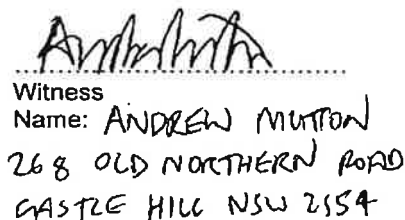 Witness
Name: ANDREW MUTTON
268 OLD NORTHERN ROAD
CASTLE HILL NSW 2154